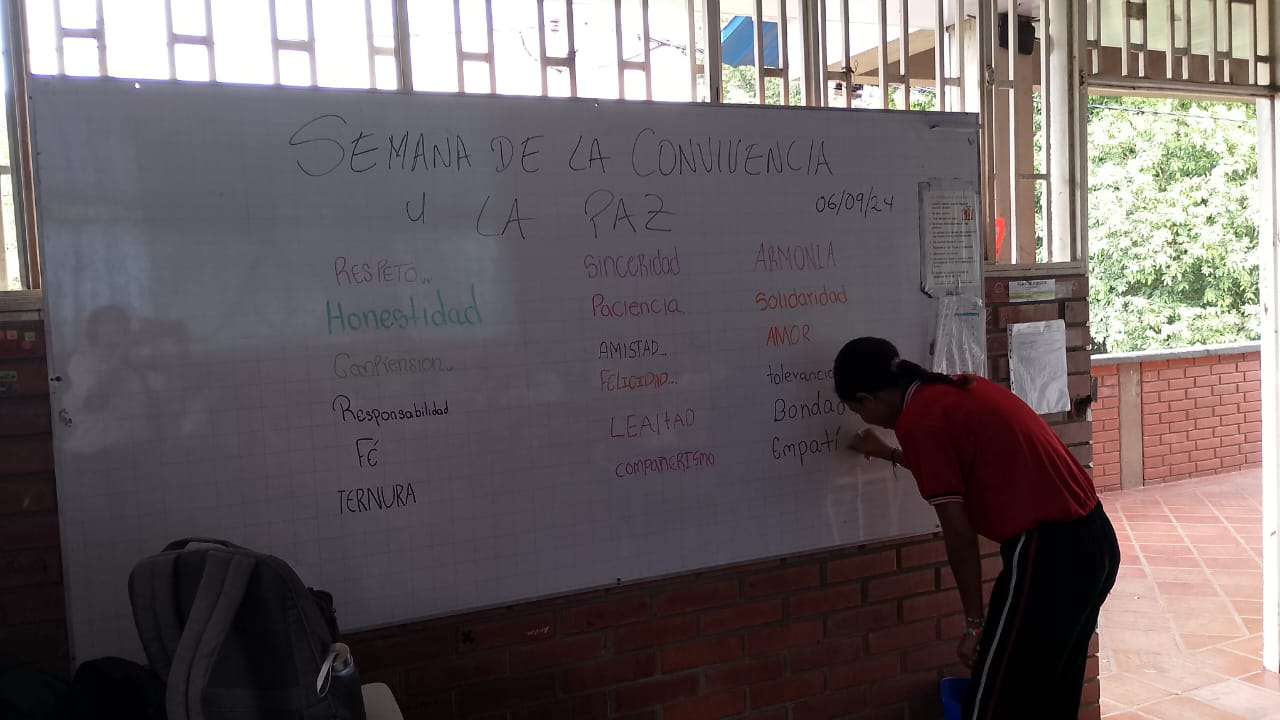 SEMANA DE LA CONVIVENCIA
y LA PAZ
06/09/24
RESPETO...
Honestidad
Conprension..
Responsabilidad
FÉ
TERNURA
SinceRidad
Paciencia
AMISTAD...
FELICIDAD...
LEAltAD
compañERISmo
ARMONIA
Solidaridad
AMOR
tolerancia
Bondad
Empatí